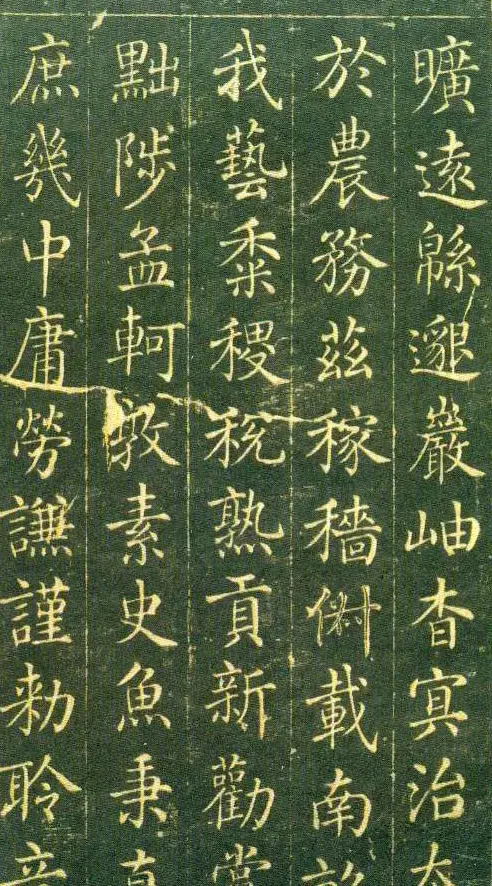 曠遠緜邈巖岫杳冥治本
於農務茲稼穡俶載南畝
我藝黍稷稅熟貢新勸賞
黜陟孟軻敦素史魚秉直
庶幾中庸勞謙謹勅聆音